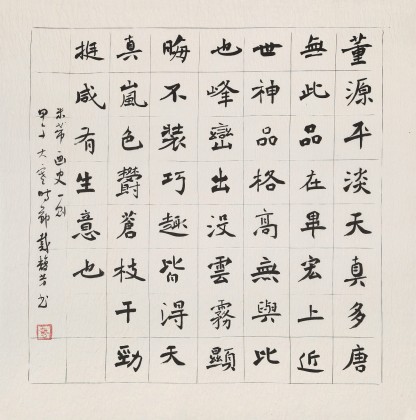 董源平淡天真多唐
無此品在畢宏上近
世神品格高無與比
也峰巒出没雲霧顯
晦不裝巧趣皆得天
真嵐色鬱蒼枝干勁
挺咸有生意也
米芾画史一則
甲午大寒時節戴